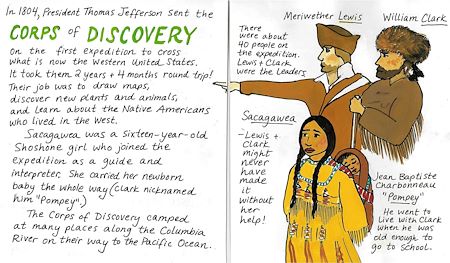 In 1804, President Thomas Jefferson sent the
CORPS of DISCOVERY
on the first expedition to cross
what is now the Western United States.
It took them 2 years + 4 months round trip!
Their job was to draw maps,
discover new plants and animals,
and learn about the Native Americans
who lived in the West.
Sacagawea was a sixteen-year-old
Shoshone girl who joined the
expedition as a guide and
interpreter. She carried her newborn
baby the whole way (Clark nicknamed
him "Pompey".)
The Corps of Discovery camped
at many places along the Columbia
River on their way to the Pacific Ocean.
Meriwether Lewis
William Clark
There
were about
40 people on
the expedition.
Lewis + Clark
were the Leaders
Sacagawea
-Lewis +
Clark
might
never
have made
it
without
her
help!
Jean Baptiste
Charbonneau
"Pompey"
He went to
live with Clark
when he was
old enough to
go to school.